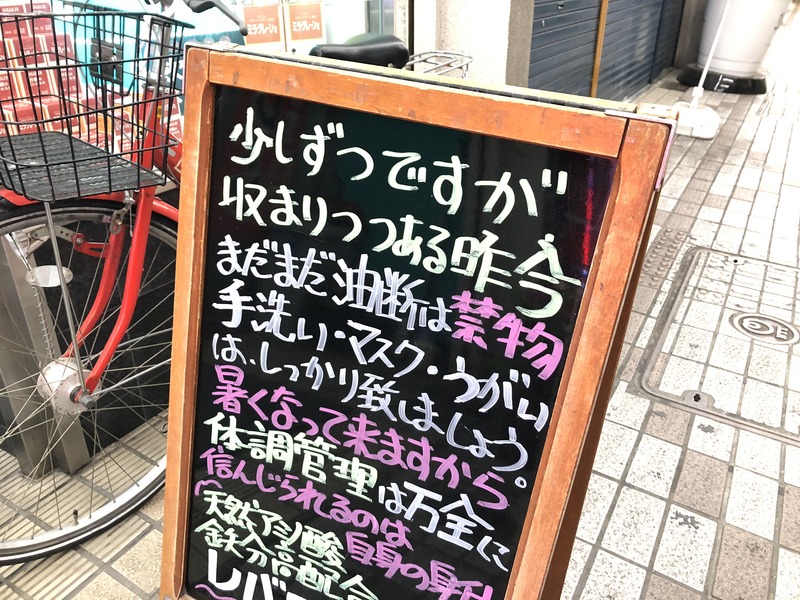 少しずつですが
収まりつつある昨今
まだまだ油断は禁物
手洗い・マスク・うがい
は、しっかり致しましょう。
暑くなって来ますから
体調管理は万全に
信んじられるのは自身の身
天然アミノ酸
鉄分高配合
レバー